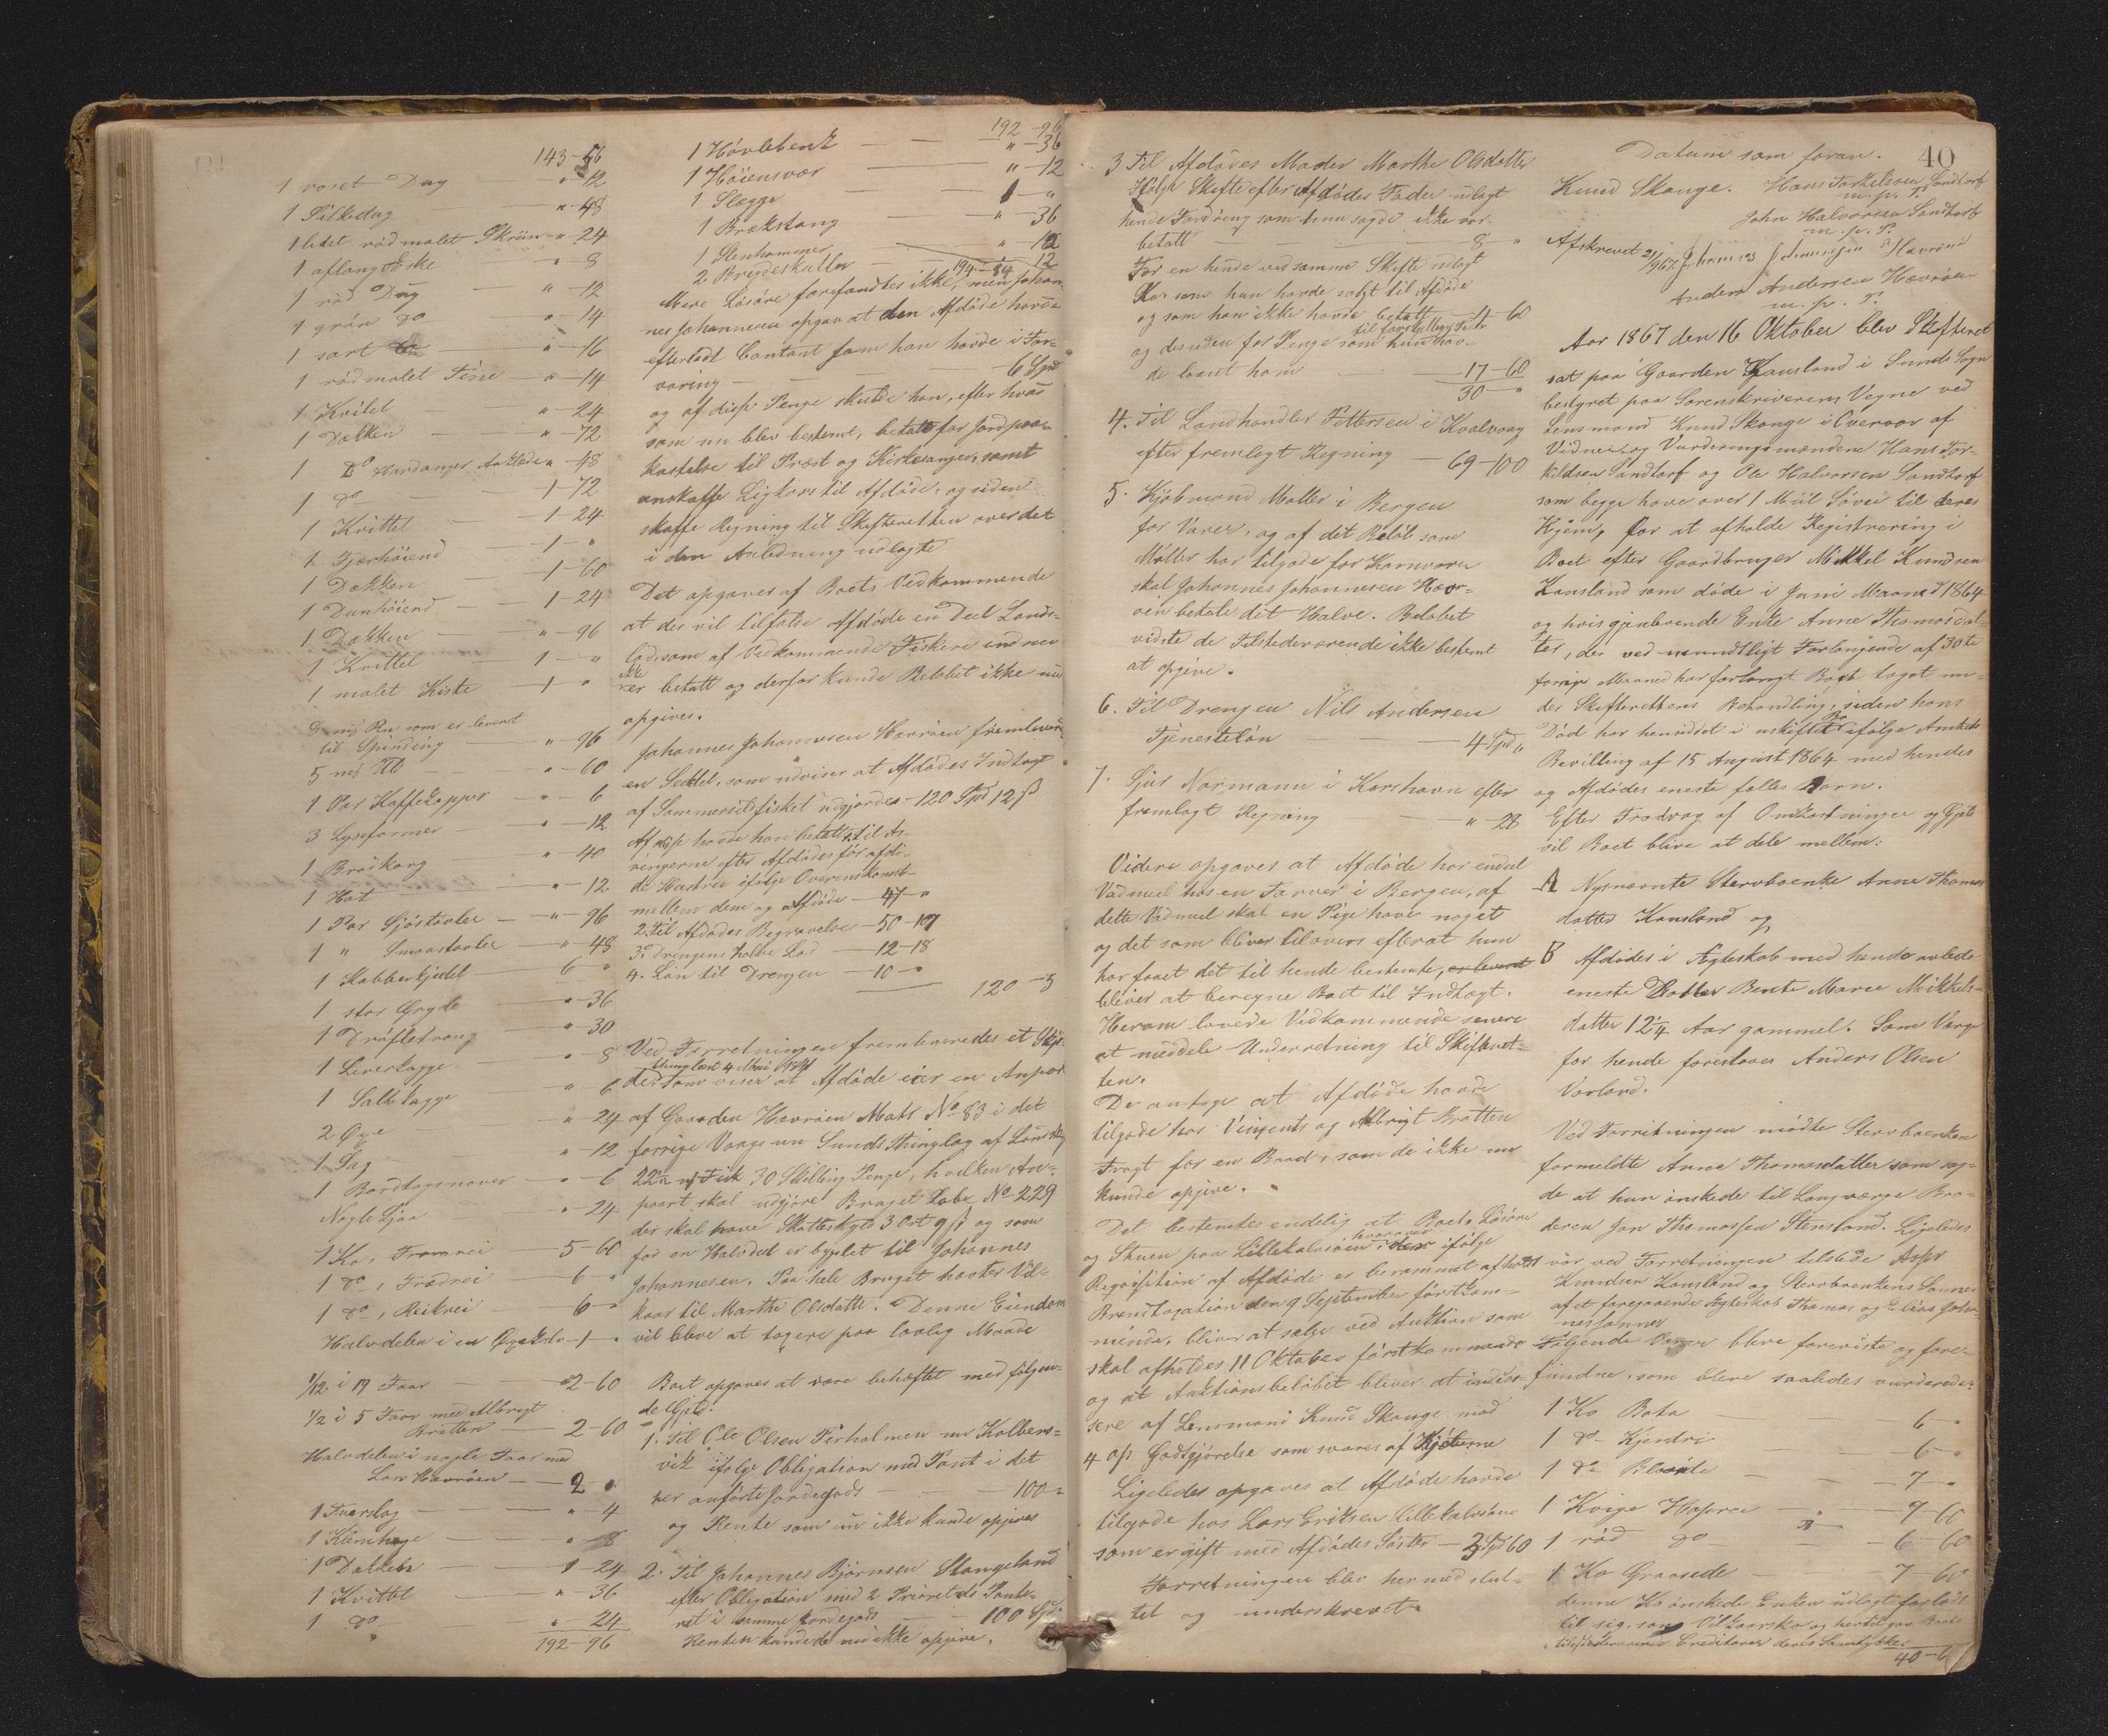 143-56
1 roset Dug " -12
1 Silkedug " -48
1 lidet rødmalet Skriin " -24
1 aflang Eske " -8
1 rød Dug " -12
1 grøn do " -14
1 sort " -16
1 rødmalet Tine " -14
1 Kvitel " -24
1 Dækken " -72
1 do Hardanger Aaklæde " -48
1 do 1-72
1 Kvittel 1-24
1 Fjærhøiend 1- "
1 Dækken 1-60
1 Dunhøiend 1-24
1 Dækken " -96
1 Kvittel 1 - "
1 malet Kiste 1 "
som er leveret
til Spinding " -96
5 mk Uld " -60
1 Par Kaffekopper " -6
3 Lyseformer " -12
1 " -40
1 Hat " -12
1 Par Sjøstøvler " -96
1 " Smaastøvler " -48
1 Kobberkjedel 6 "
1 stor Gryde " -36
1 Drøftetroug " -30
1 Levertagge " -8
1 Salttagge " -6
2 Øxe " -24
1 Sag " -12
1 Bordtagsnaver " -6
Nogle Ljaa " -24
1 Ko, Framrei 5-60
1 do, Fredrei 6 "
1 do, Reikrei 6 "
Halvdelen i en 1 "
1/12 i 19 Faar 2-60
1/2 i 5 Faar med Albregt
Bratten 2-60
Halvdelen i nogle Faar med
Lars Hævrøen 2 "
1 Tverslag " 4
1 " -8
1 Dækken 1-24
1 Kvittel " -36
1 do " -24
192-96
192-96
1 Høvlebenk " -36
1 " -12
1 Slægge 1 - "
1 Brækstang " -36
1 Stenhammer " -12
2 12
194-84
Mere Løsøre forefandtes ikke, men Johan-
nes Johannesen opgav at den Afdøde havde
efterladt Contant som han havde i For-
varing 6 Spd
og af disse Penge skulde han, efter hvad
som nu blev bestemt, betale for Jordpaa-
kastelse til Præst og Kirkesanger, samt
anskaffe Ligkors til Afdøde, og siden
skaffe Regning til Skifteretten over det
i den Anledning udlagte
Det opgaves af Boets Vedkommende
at der vil tilfalde Afdøde en Deel Lands-
lod som af Vedkommende Fiskere endnu
ikke
er betalt og derfor kunde Beløbet ikke nu
opgives.
Johannes Johannesen Hævrøen fremleverede
en Seddel, som udviser at Afdødes Indtægt
af Sommersildfisket udgjorde 120 Spd 12 ß
Af disse havde han betalt 1, til Ar-
vingerne efter Afdødes før afdø-
de Hustru ifølge Overenskomst
mellem dem og Afdøde 47 - "
2. Til Afdødes Begravelse 50-107
3. Drengens halve Lod 12-18
4. Løn til Drengen 10 - "
120-5
Ved Forretningen fremleveredes et Skjø-
thinglæst 4 Mai 1854
de som viser at Afdøde eier en Anpart
af Gaarden Hævrøen Matr No 83 i det
forrige Vaags nu Sunds Thinglag af Landskyld
22 1/2 mk Fisk 30 Skilling Penge, hvilken An-
paart skal udgjøre Bruget Løbe No 229
der skal have Skatteskyld 3 Ort 9 ß og som
for en Halvdeel er bygslet til Johannes
Johannesen. Paa hele Bruget hæfter Vil-
kaar til Marthe Olsdatter. Denne Eiendom
vil blive at taxere paa lovlig Maade
Boet opgaves at være behæftet med følgen-
de Gjeld:
1. Til Ole Olsen Pirholmen nu Kolbens-
vik ifølge Obligation med Pant i det
her anførte Jordegods 100 "
og Rente som nu ikke kunde opgives
2. Til Johannes Bjørnsen Stangeland
efter Obligation med 2 Prioritets Pante-
ret i samme Jordegods 100 Spd
Renten kunde de nu ikke opgive.
3 Til Afdødes Moder Marthe Olsdatter
ifølge Skifte efter Afdødes Fader udlagt
hende Fordring som hun sagde ikke var
betalt 8 "
For en hende ved samme Skifte udlagt
Ko som hun havde solgt til Afdøde
og som han ikke havde betalt 4-60
til forskjellige Tider
og desuden for Penge som hun hav-
de laant ham 17-60
30 "
4. Til Landhandler Pettersen i Kvalvaag
efter fremlagt Regning 69-100
5. Kjøbmand Møller i Bergen
for Varer, og af det Beløb som
Møller har tilgode for Kornvarer
skal Johannes Johannesen Hævr-
øen betale det Halve. Beløbet
vidste de Tilstedeværende ikke bestemt
at opgive.
6. Til Drengen Nils Andersen
Tjenesteløn 4 Spd "
7. Gjert Normann i Korshavn efter
fremlagt Regning " -28
Videre opgaves at Afdøde har endeel
Vadmeel hos en Farver i Bergen, af
dette Vadmeel skal en Pige have noget
og det som bliver tilovers efterat hun
har faaet det til hende bestemte, er leveret
bliver at beregne Boet til Indtægt.
Herom lovede Vedkommende senere
at meddele Underretning til Skifteret-
ten.
De antoge at Afdøde havde
tilgode hos Vincents og Albrigt Bratten
Fragt for en Baad, som de ikke nu
kunde opgive.
Det bestemtes endelig at Boets Løsøre
og Stuen paa Lillekalsøen, hvorover ifølge
Reqvisition af Afdøde er berammet afholdt
Brandtaxation den 9 September førstkom-
mende, bliver at sælge ved Auktion som
skal afholdes 11 Oktober førstkommende
og at Auktionsbeløbet bliver at indkas-
sere af Lensmand Knud Skauge mod
4 op Godtgjørelse som svares af Kjøberne
Ligeledes opgaves at Afdøde havde
tilgode hos Lars Eriksen Lillekalsøen
som er gift med Afdødes Søster 3 Spd 60
Forretningen blev hermed slut-
tet og underskrevet.
40
Datum som foran.
Knud Skauge. Hans Torkelsen Sandtorf
m. p. P.
John Halvorsen Sandtorf
m. p. P.
Afskrevet 21/9 67. Johannes Johannesen Hævrøen
Anders Andersen Hævrøen
m. p. P.
Aar 1867 den 16 Oktober blev Skifteret
sat paa Gaarden Kausland i Sunds Sogn
bestyret paa Sorenskriverens Vegne ved
Lensmand Knud Skauge i Overvær af
Vidner og Vurderingsmændene Hans Tor-
kildsen Sandtorf og Ole Halvorsen Sandtorf
som begge have over 1 Miil Søvei til deres
Hjem, for at afholde Registrering i
Boet efter Gaardbruger Mikkel Knudsen
Kausland som døde i Juni Maaned 1864
og hvis gjenlevende Enke Anne Thomasdat-
ter, der ved mundtligt Forlangende af 30te
forrige Maaned har forlangt Boet taget un-
der Skifterettens Behandling, siden hans
Død har henviddet i uskiftet Bo ifølge Amtets
Bevilling af 15 August 1864 med hendes
og Afdødes eneste felles Barn.
Efter Fradrag af Omkostninger og Gjeld
vil Boet blive at dele mellem:
A Nysnævnte Stervboenke Anne Thomas
datter Kausland og
B Afdødes i Ægteskab med hende avlede
eneste Datter Bente Marie Mikkels-
datter 12 1/4 Aar gammel. Som Værge
for hende foresloges Anders Olsen
Vorland.
Ved Forretningen mødte Stervboenken
formeldte Anne Thomasdatter som sag-
de at hun ønskede til Laugværge Bro-
deren Jon Thomassen Stensland. Ligeledes
var ved Forretningen tilstede
Knudsen Kausland og Stervboenkens Sønner
af et foregaaende Ægteskab Thomas og Elias Johan-
nessønner
Følgende bleve foreviste og fore-
fundne, som bleve saaledes vurderede:
1 Ko Bota 6 "
1 do Kjendri 6 "
1 do 7 "
1 Kvige 7-60
1 rød do 6-60
1 Ko Graasede 7-60
denne Ko ønskede Enken udlagt forlods
til sig, som Vilkaarsko og hertil gav Boets
tilstedeværende Creditorer deres Samtykke.
40-6